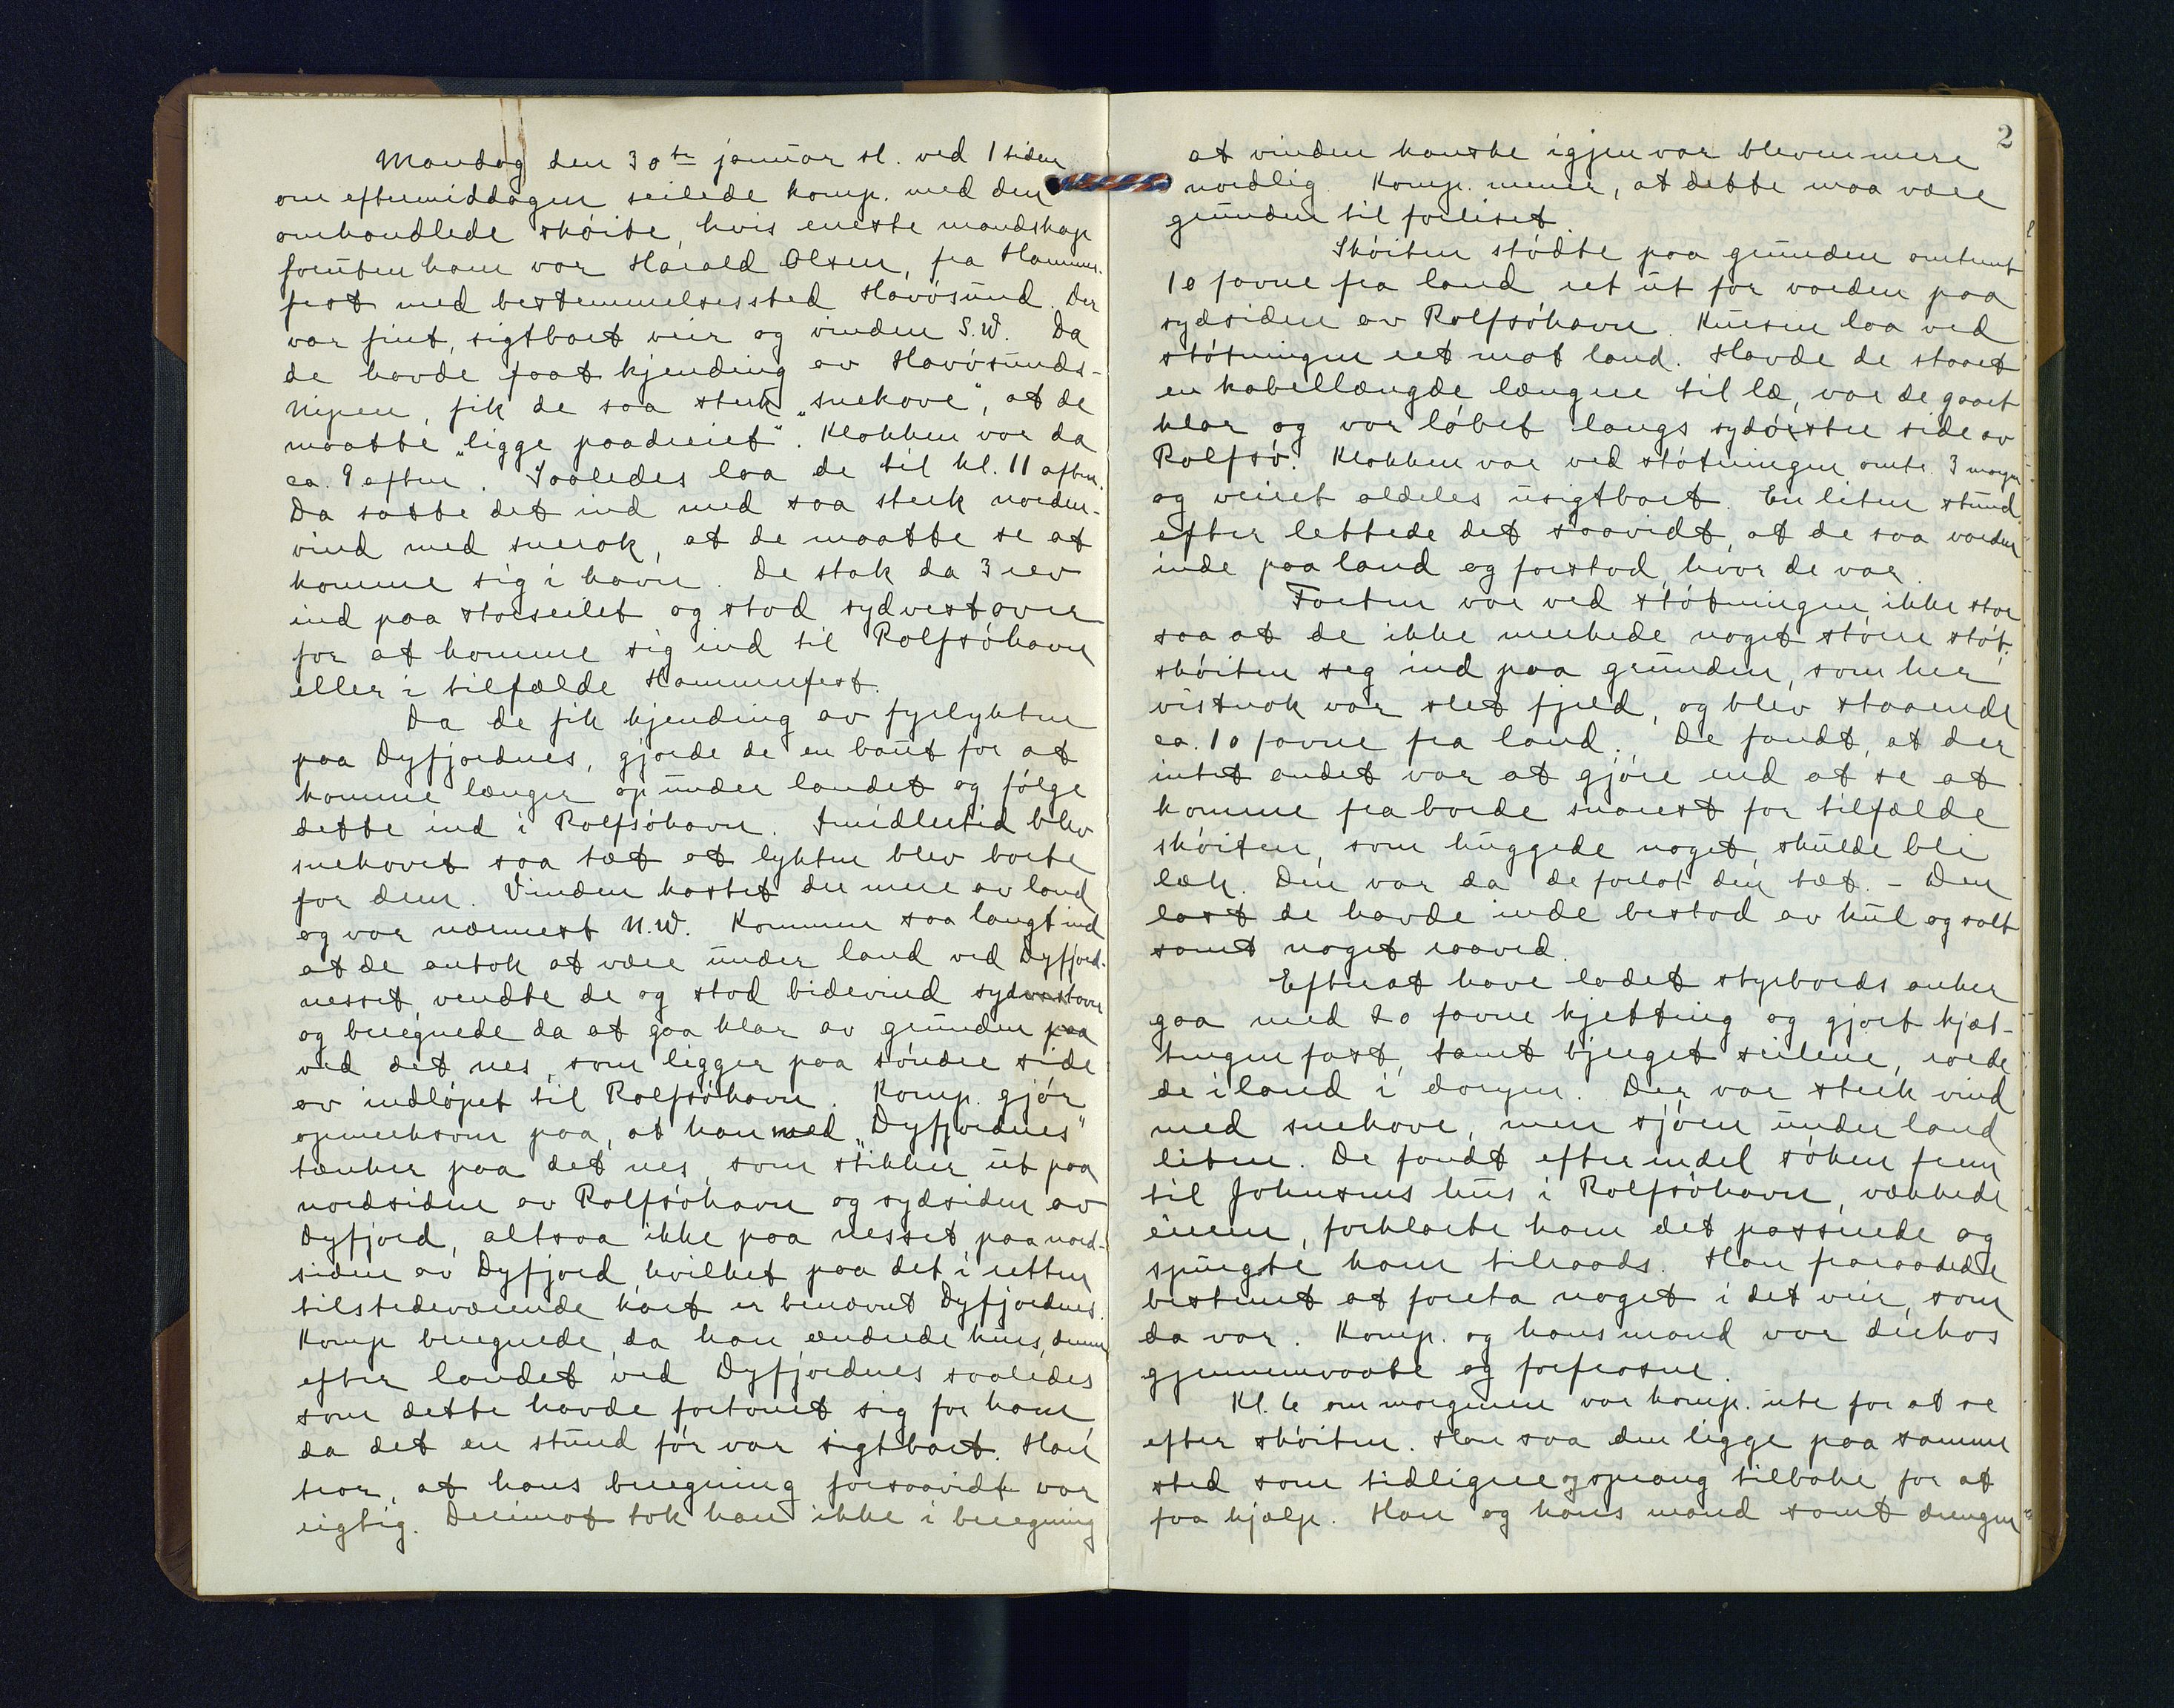 Mandag den 30te januar sl. ved 1 tiden
om eftermiddagen seilede komp. med den
omhandlede skóite, hvis eneste mandskap
foruten ham var Harald Olsen, fra Hammer-
fest med bestemmelsessted Havósund. Der
var fint, sigtbart veir og vinden S.W. Da
de havde faat kjending av Havósunds-
nipen, fik de saa sterk "snekave", at de
maatte "ligge paadreiet". Klokken var da
ca. 9 aften. Saaledes laa de til kl. 11 aften.
Da satte det ind med saa sterk norden-
vind med snerok, at de maatte se at
komme sig i havn. De stak da 3 rev
ind paa storseilet og stod sydvestover
for at komme sig ind til Rolfsóhavn
eller i tilfælde Hammerfest.
Da de fik kjending av fyrlykten
paa Dyfjordnes, gjorde de en baut for at
komme længer op under landet og fólge
dette ind i Rolfsóhavn. Imidlertid blev
snekavet saa tæt at lykten blev borte
for dem. Vinden kastet der mere av land
og var nærmest N.W. Kommen saa langt ind
at de antok at være under land ved Dyfjord-
nesset, vendte de og stod bidevind sydvestover
og beregnede da at gaa klar av grunden paa
ved det nes, som ligger paa sóndre side
av indlópet til Rolfsóhavn. Komp. gjór
opmerksom paa, at han med "Dyfjordnes"
tænker paa det nes, som stikker ut paa
nordsiden av Rolfsóhavn og sydsiden av
Dyfjord, altsaa ikke paa nesset paa nord-
siden av Dyfjord, hvilket paa det i retten
tilstedeværende kart er benævnt Dyfjordnes.
Komp beregnede, da han ændrede kurs, denne
efter landet ved Dyfjordnes saaledes
som dette havde fortonet sig for ham
da det en stund fór var sigtbart. Han
tror, at hans beregning forsaavidt var
rigtig. Derimot tok han ikke i beregning
2
at vinden kanske igjen var bleven mere
nordlig. Komp. mener, at dette maa være
grunden til forliset.
Skóiten stódte paa grunden omtrent
10 favne fra land ret ut for varden paa
sydsiden av Rolfsóhavn. Kursen laa ved
stótningen ret mot land. Havde de staaet
en kabellængde længre til læ, var de gaaet
klar og var lóbet langs sydóstre side av
Rolfsó. Klokken var ved stótningen omtr. 3 morgen
og veiret aldeles usigtbart. En liten stund
efter lettede det saavidt, at de saa varden
inde paa land og forstod, hvor de var.
Farten var ved stótningen ikke stor
saa at de ikke merkede noget stórre stót.
skóiten seg ind paa grunden, som her
vistnok var slet fjeld, og blev staaende
ca. 10 favne fra land. De fandt, at der
intet andet var at gjóre end at se at
komme fra borde snarest for tilfælde
skóiten, som huggede noget, skulde bli
læk. Den var da de forlot den tæt. - Den
last de havde inde bestod av kul og salt
samt noget raaved.
Efterat have ladet styrbords anker
gaa med 20 favne kjetting og gjort kjæt-
tingen fast, samt bjerget seilene, roede
de iland i doryen. Der var sterk vind
med snekave, men sjóen under land
liten. De fandt efter endel sóken frem
til Johnsens hus i Rolfsóhavn, vækkede
eieren, forklarte ham det passerede og
spurgte ham tilraads. Han fraraadede
bestemt at foreta noget i det veir, som
da var. Komp. og hans mand var derhos
gjennemvaate og forfrosne.
Kl. 6 om morgenen var komp. ute for at se
efter skóiten. Han saa den ligge paa samme
sted som tidligere og sprang tilbake for at
faa hjælp. Han og hans mand samt drengen